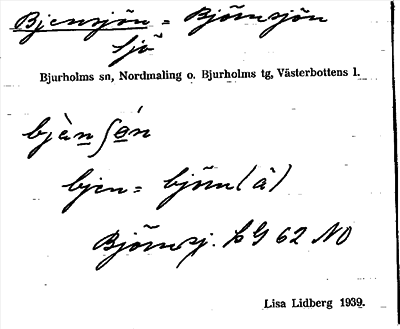 Bjensjön = Björnsjön
sjö
Bjurholms sn, Nordmaling o. Bjurholms tg, Västerbottens l.
bjèn ʃǿn
bjen = björn (å)
Björnsj. LG 62 NO
Lisa Lidberg 1939.